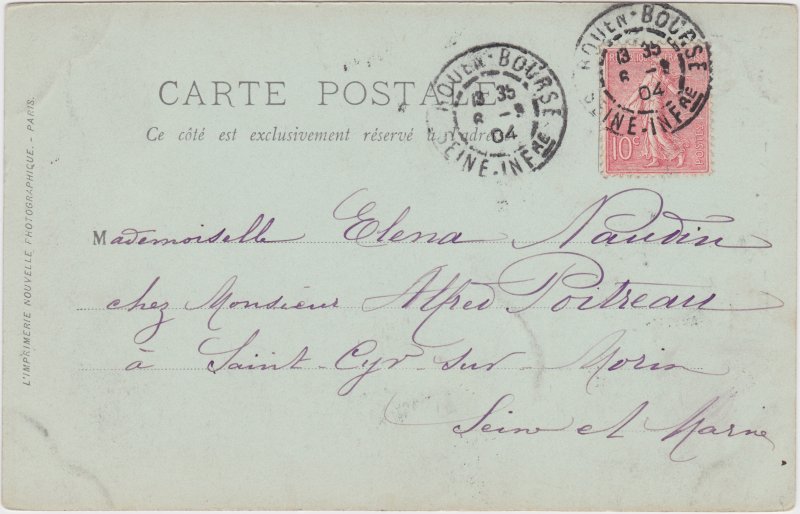 CARTE POSTALE
Ce côté est exclusivement réservé à l'adresse
ROUEN-BOURSE
13 35
6 -
04
SEINE-INFRE
ROUEN-BOURSE
13 35
6 -
04
SEINE-INFRE
10c
POSTES
Mademoiselle Elena Naudin
chez Monsieur Alfred Poitreau
à Saint-Cyr-sur-Morin
Seine et Marne
L'IMPRIMERIE NOUVELLE PHOTOGRAPHIQUE. - PARIS.